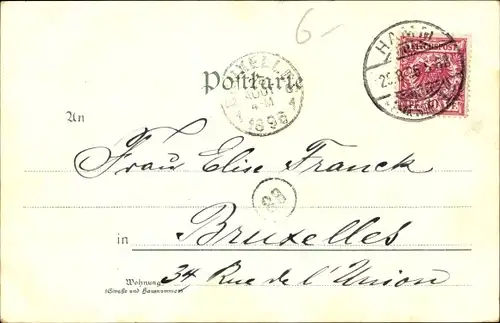 6-
Postkarte
1896
An
Frau Elise Franck
in
Bruxelles
Wohnung
(Straße und Hausnummer)
34, Rue de l'Union